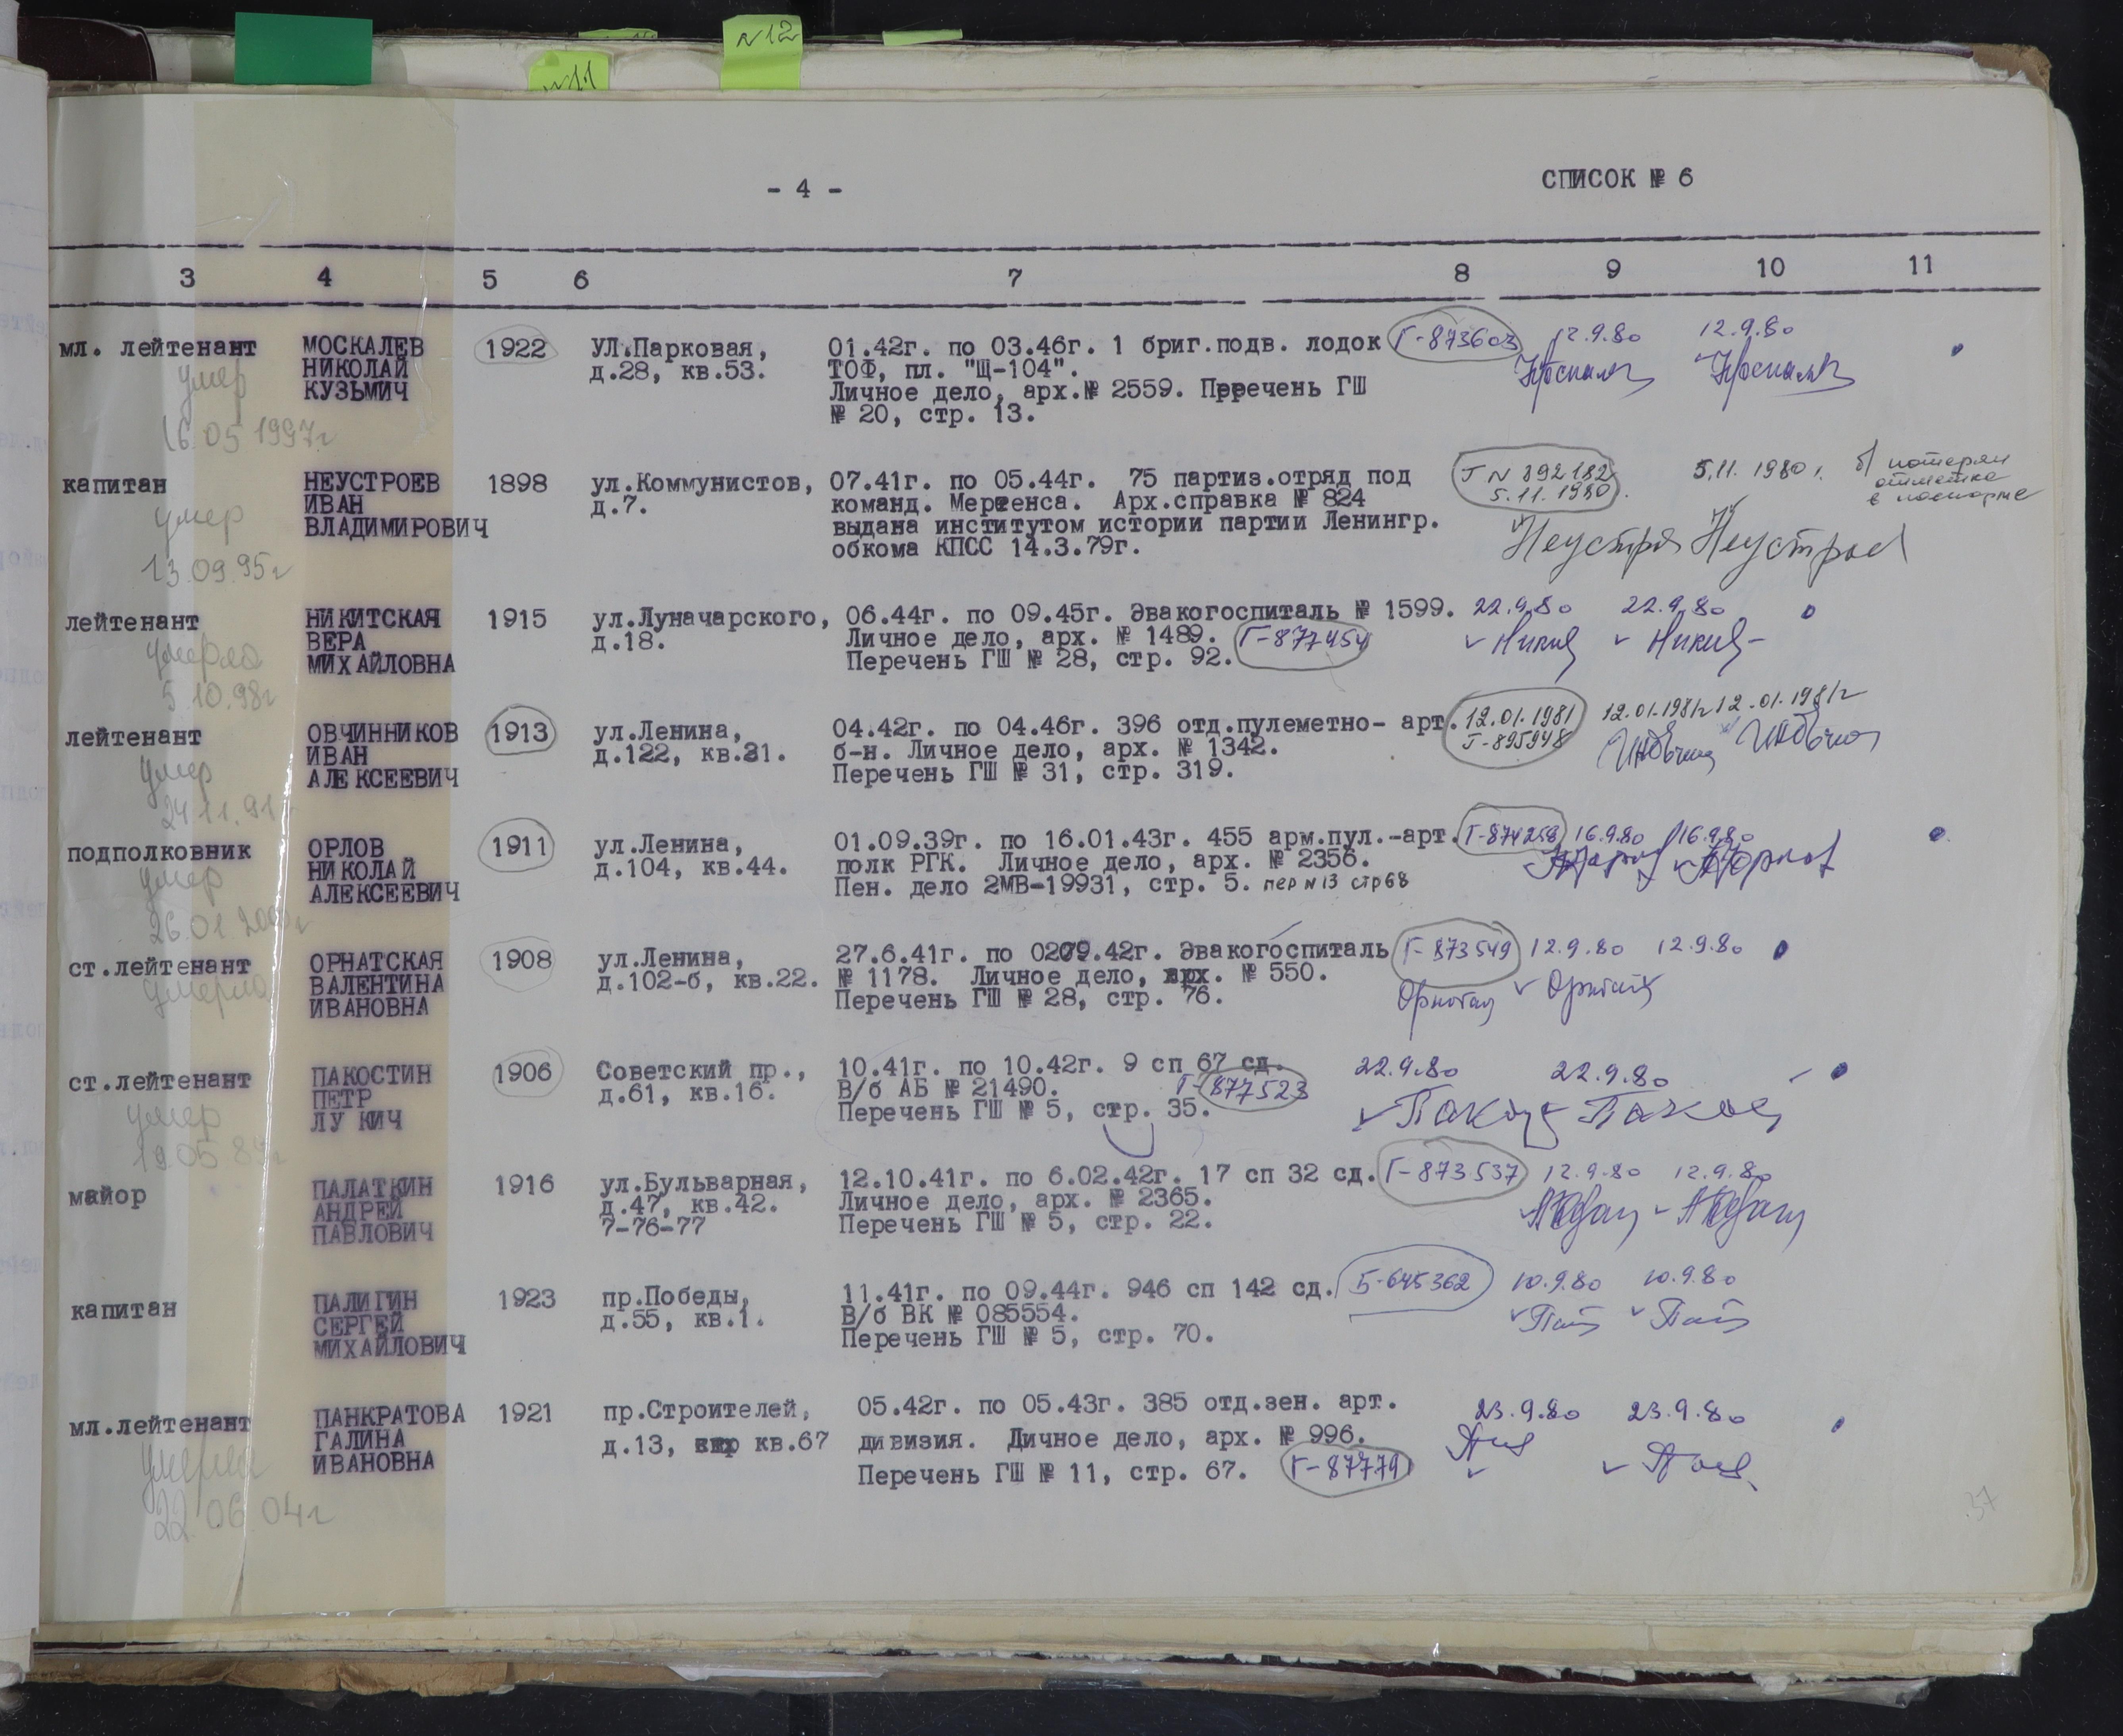 N12
N11
- 4 -
СПИСОК № 6
3 4 5 6 7 8 9 10 11
мл. лейтенант МОСКАЛЕВ 1922 УЛ.Парковая, 01.42г. по 03.46г. 1 бриг.подв. лодок Г-873603 12.9.80 12.9.80
умер НИКОЛАЙ д.28, кв.53. ТОФ, пл. "Щ-104".
КУЗЬМИЧ Личное дело, арх.№ 2559. Перечень ГШ
16.05 1997г № 20, стр. 13.
капитан НЕУСТРОЕВ 1898 ул.Коммунистов, 07.41г. по 05.44г. 75 партиз.отряд под Г N 892182 5.11. 1980г. б/ потерян
умер ИВАН д.7. команд. Мертенса. Арх.справка № 824 5.11.1980. отметка
ВЛАДИМИРОВИЧ выдана институтом истории партии Ленингр. в паспорте
13.09.95г обкома КПСС 14.3.79г. Неустроев Неустроев
лейтенант НИКИТСКАЯ 1915 ул.Луначарского, 06.44г. по 09.45г. Эвакогоспиталь № 1599. 22.9.80 22.9.80
умерла ВЕРА д.18. Личное дело, арх. № 1489. Г-877454
5.10.98г МИХАЙЛОВНА Перечень ГШ № 28, стр. 92.
лейтенант ОВЧИННИКОВ 1913 ул.Ленина, 04.42г. по 04.46г. 396 отд.пулеметно- арт. 12.01.1981 12.01.1981г 12.01.1981г
умер ИВАН д.122, кв.31. б-н. Личное дело, арх. № 1342. Г-895948
24.11.91 АЛЕКСЕЕВИЧ Перечень ГШ № 31, стр. 319.
подполковник ОРЛОВ 1911 ул.Ленина, 01.09.39г. по 16.01.43г. 455 арм.пул.-арт. Г-874258 16.9.80 16.9.80
умер НИКОЛАЙ д.104, кв.44. полк РГК. Личное дело, арх. № 2356.
26.01 2000г АЛЕКСЕЕВИЧ Пен. дело 2МВ-19931, стр. 5. пер N 13 стр 68
ст.лейтенант ОРНАТСКАЯ 1908 ул.Ленина, 27.6.41г. по 0209.42г. Эвакогоспиталь Г-873549 12.9.80 12.9.80
умерла ВАЛЕНТИНА д.102-б, кв.22. № 1178. Личное дело, арх. № 550.
ИВАНОВНА Перечень ГШ № 28, стр. 76.
ст.лейтенант ПАКОСТИН 1906 Советский пр., 10.41г. по 10.42г. 9 сп 67 сд. 22.9.80 22.9.80
умер ПЕТР д.61, кв.16. В/б АБ № 21490. Г-877523
19.05 84г ЛУКИЧ Перечень ГШ № 5, стр. 35.
майор ПАЛАТКИН 1916 ул.Бульварная, 12.10.41г. по 6.02.42г. 17 сп 32 сд. Г-873537 12.9.80 12.9.80
АНДРЕЙ д.47, кв.42. Личное дело, арх. № 2365.
ПАВЛОВИЧ 7-76-77 Перечень ГШ № 5, стр. 22.
капитан ПАЛИГИН 1923 пр.Победы, 11.41г. по 09.44г. 946 сп 142 сд. Б-645362 10.9.80 10.9.80
СЕРГЕЙ д.55, кв.1. В/б ВК № 085554.
МИХАЙЛОВИЧ Перечень ГШ № 5, стр. 70.
мл.лейтенант ПАНКРАТОВА 1921 пр.Строителей, 05.42г. по 05.43г. 385 отд.зен. арт. 23.9.80 23.9.80
умерла ГАЛИНА д.13, кв.67 дивизия. Дичное дело, арх. № 996.
22.06.04г ИВАНОВНА Перечень ГШ № 11, стр. 67. Г-87779
37